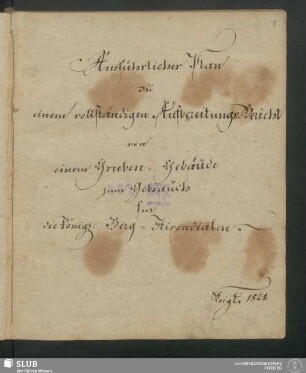 Ausführlicher Plan
zu
einem vollständigen Aufbereitungs Bericht
von
einem Gruben-Gebäude
zum Gebrauch
für
die Königl. Berg-Stipendiaten.
Voigt. 1821.
SLUB
Wir führen Wissen.